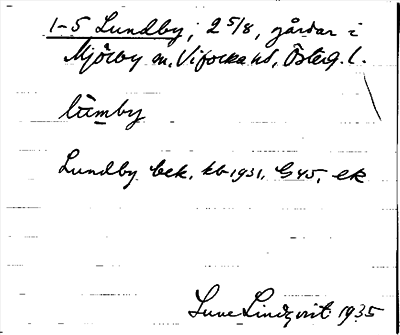 1-5 Lundby, 2 5/8, gårdar i
Mjölby sn, Vifolka hd, Österg. l.
lùmby
Lundby bek. kb 1931, G 45, ek
Sune Lindqvist 1935